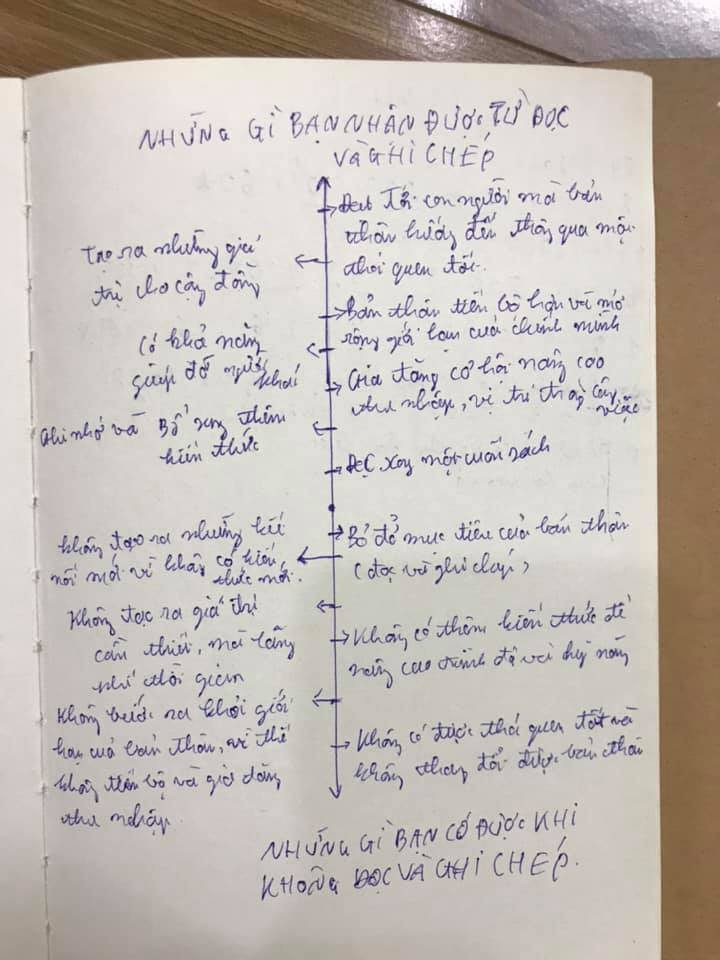 NHỮNG GÌ BẠN NHÂN ĐƯỢC TỪ ĐỌC
VÀ GHI CHÉP
Đạt tới con người mà bản
thân hướng đến thông qua một
thói quen tốt.
Tạo ra những giá
trị cho cộng đồng
Bản thân tiến bộ hơn và mở
rộng giới hạn của chính mình
Có khả năng
giúp đỡ người
khác
Gia tăng cơ hội nâng cao
thu nhập, vị trí trong công
việc
Ghi nhớ và Bổ sung thêm
kiến thức
ĐỌC xong một cuốn sách
Bỏ đỏ mục tiêu của bản thân
(đọc và ghi chép)
không tạo ra những kết
nối mới vì không có kiến
thức mới.
Không tạo ra giá trị
cần thiết, mà lãng
phí thời gian
Không có thêm kiến thức để
nâng cao trình độ và kỹ năng
Không bước ra khỏi giới
hạn của bản thân, vì thế
không tiến bộ và gia tăng
thu nhập.
Không có được thói quen tốt và
không thay đổi được bản thân
NHỮNG GÌ BẠN CÓ ĐƯỢC KHI
KHÔNG ĐỌC VÀ GHI CHÉP.